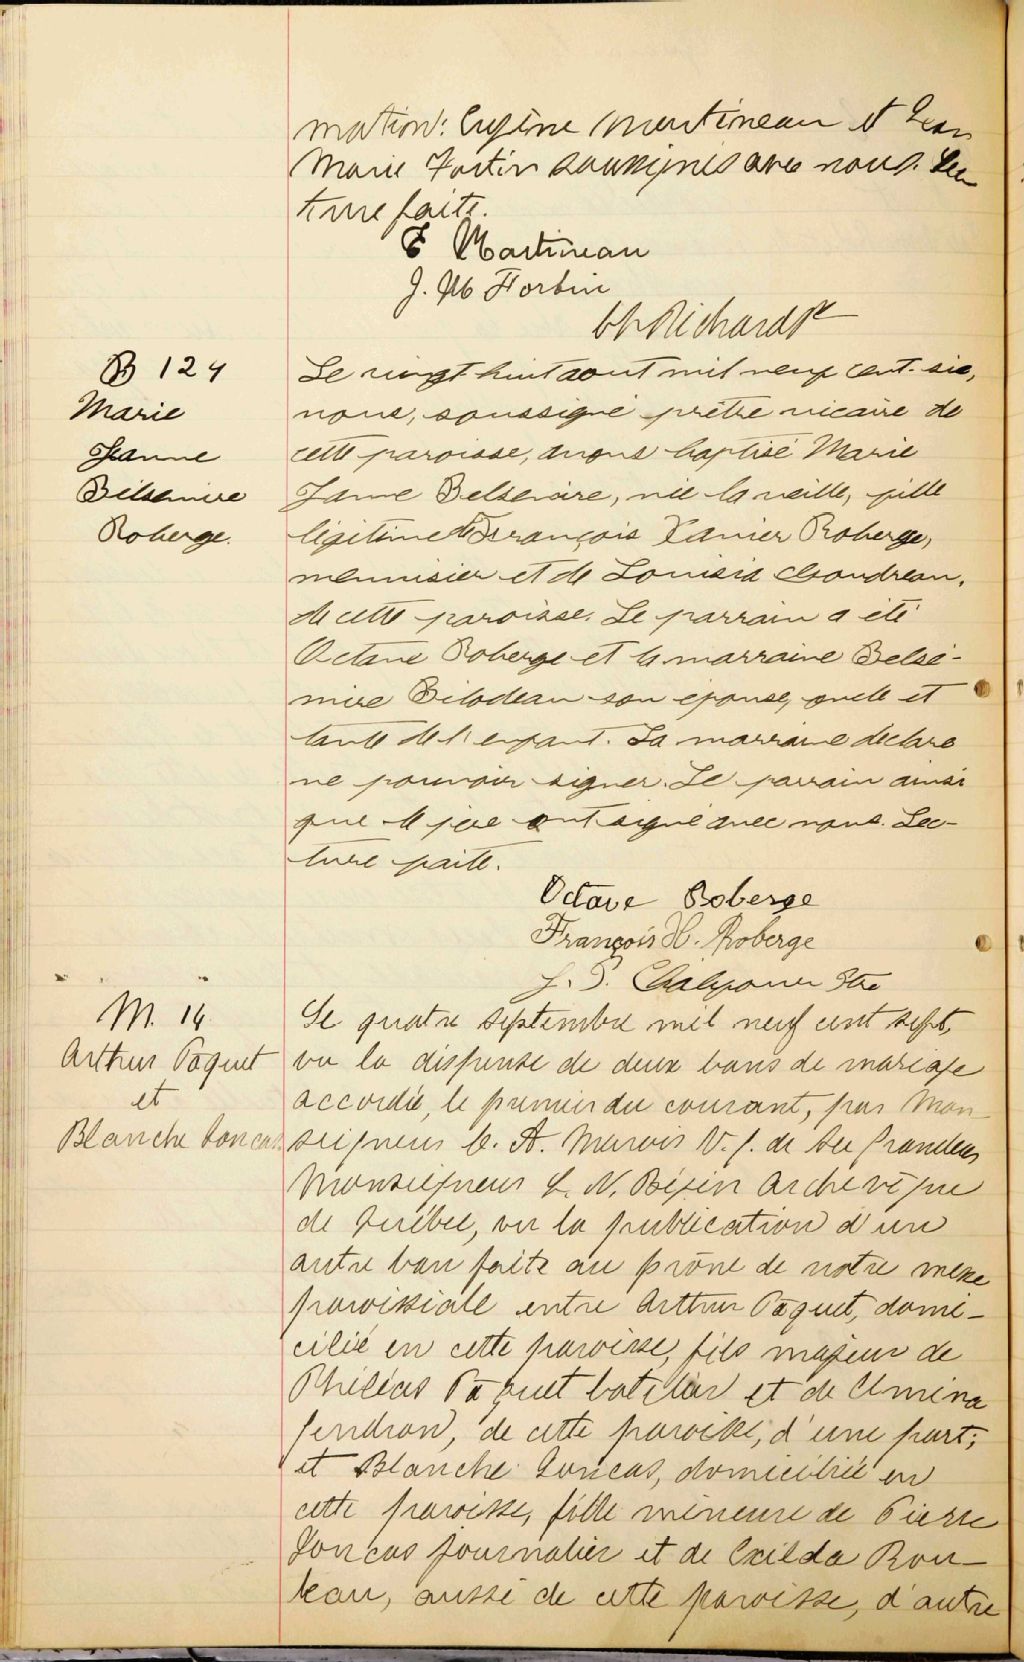 mation: Eugène Martineau et Jean
Marie Fortin soussignés avec nous. Lec
ture faite.
E Martineau
J. M Fortin
Ch Richard Ptre
B 124
Marie
Jeanne
Belsemire
Roberge.
Le vingt huit aout mil neuf cent-six,
nous, soussigné prêtre vicaire de
cette paroisse, avons baptisé Marie
Jeanne Belsemire, née la veille, fille
légitime de François Xavier Roberge,
menuisier et de Louisia Goudreau,
de cette paroisse. Le parrain a été
Octave Roberge et la marraine Belsé-
mire Bilodeau son épouse, oncle et
tante de l'enfant. La marraine déclare
ne pouvoir signer. Le parrain ainsi
que le père ont signé avec nous. Lec-
ture faite.
Octave Roberge
François X. Roberge
J. P.
M. 14
Arthur Paquet
et
Blanche Joncas
Le quatre septembre mil neuf cent sept,
vu la dispense de deux bans de mariage
accordée, le premier du courant, par Mon-
seigneur C. A. Marois V. g. de Sa Grandeur
Monseigneur L. N. Bégin Archevêque
de Québec, vu la publication d'un
autre ban faite au prône de notre messe
paroissiale entre Arthur Paquet, domi-
cilié en cette paroisse, fils majeur de
Philéas Paquet batelier et de Elmina
Gendron, de cette paroisse, d'une part;
et Blanche Joncas, domiciliée en
cette paroisse, fille mineure de Pierre
Joncas journalier et de Exilda Rou-
leau, aussi de cette paroisse, d'autre